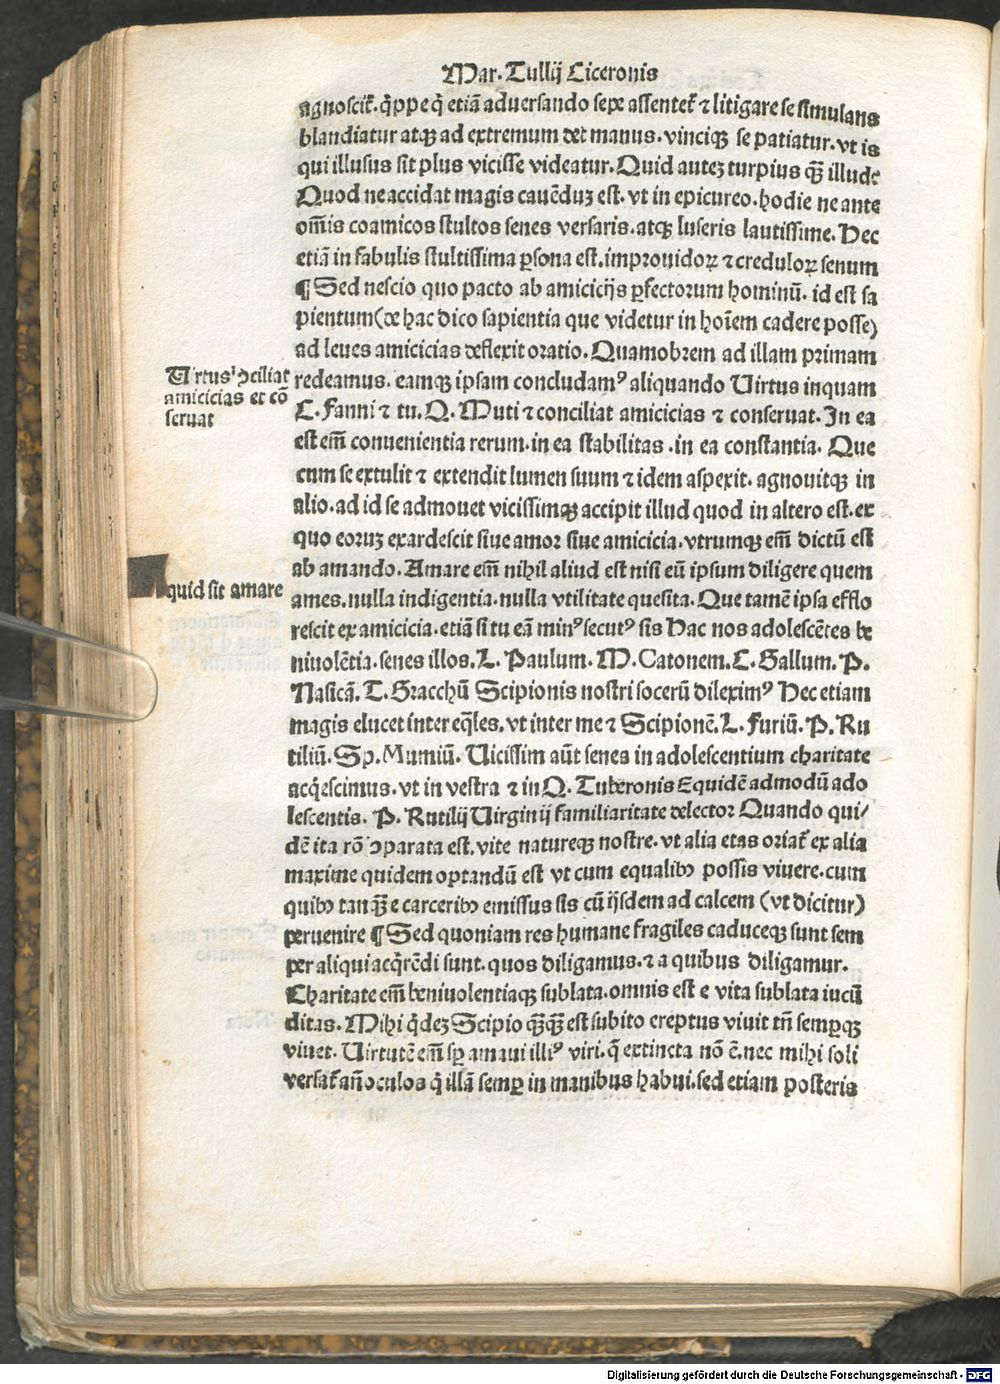 Mar. Tullij Ciceronis
agnoscit̃. q̃ppe q̃ etiã aduersando sepe assentet̃ ⁊ litigare se simulans
blandiatur atqꝫ ad extremum det manus. vinciqꝫ se patiatur. vt is
qui illusus sit plus vicisse videatur. Quid autẽ turpius qꝫ̃ illude
Quod ne accidat magis cauẽduꝫ est. vt in epicureo. hodie ne ante
om̃is coamicos stultos senes versaris. atqꝫ luseris lautissime. Hec
etiã in fabulis stultissima ꝑsona est. improuidoꝝ ⁊ creduloꝝ senum
¶ Sed nescio quo pacto ab amicicijs ꝑfectorum hominũ. id est sa
pientum (de hac dico sapientia que videtur in hoĩem cadere posse)
ad leues amicicias deflexit oratio. Quamobrem ad illam primam
redeamus. eamqꝫ ipsam concludamꝰ aliquando Uirtus inquam
C. Fanni ⁊ tu. Q. Muti ⁊ conciliat amicicias ⁊ conseruat. In ea
est em̃ conuenientia rerum. in ea stabilitas. in ea constantia. Que
cum se extulit ⁊ extendit lumen suum ⁊ idem aspexit. agnouitqꝫ in
alio. ad id se admouet vicissimqꝫ accipit illud quod in altero est. ex
quo eoruꝫ exardescit siue amor siue amicicia. vtrumqꝫ em̃ dictũ est
ab amando. Amare em̃ nihil aliud est nisi eũ ipsum diligere quem
ames. nulla indigentia. nulla vtilitate quesita. Que tamẽ ipsa efflo
rescit ex amicicia. etiã si tu eã minꝰ secutꝰ sis Hac nos adolescẽtes be
niuolẽtia. senes illos. L. Paulum. M. Catonem. C. Gallum. P.
Nasicã. T. Gracchũ Scipionis nostri socerũ dileximꝰ Hec etiam
magis elucet inter eq̃les. vt inter me ⁊ Scipionẽ. L. Furiũ. P. Ru
tiliũ. Sp. Mumiũ. Uicissim aũt senes in adolescentium charitate
acq̃escimus. vt in vestra ⁊ in Q. Tuberonis Equidẽ admodũ ado
lescentis. P. Rutilij Uirginij familiaritate delector Quando qui/
dẽ ita rõ ↄparata est. vite natureqꝫ nostre. vt alia etas oriat̃ ex alia
maxime quidem optandũ est vt cum equalibꝰ possis viuere. cum
quibꝰ tanqꝫ̃ e carceribꝰ emissus sis cũ ijsdem ad calcem (vt dicitur)
peruenire ¶ Sed quoniam res humane fragiles caduceqꝫ sunt sem
per aliqui acq̃rẽdi sunt. quos diligamus. ⁊ a quibus diligamur.
Charitate em̃ beniuolentiaqꝫ sublata. omnis est e vita sublata iucũ
ditas. Mihi q̃deꝫ Scipio qꝫ̃qꝫ̃ est subito ereptus viuit tñ semꝑqꝫ
viuet. Uirtutẽ em̃ sꝑ amaui illiꝰ viri. q̃ extincta nõ ẽ. nec mihi soli
versat̃ añ oculos q̃ illã semꝑ in manibus habui. sed etiam posteris
Uirtusꝰ ↄciliat
amicicias et cõ
seruat
quid sit amare
Digitalisierung gefördert durch die Deutsche Forschungsgemeinschaft - DFG